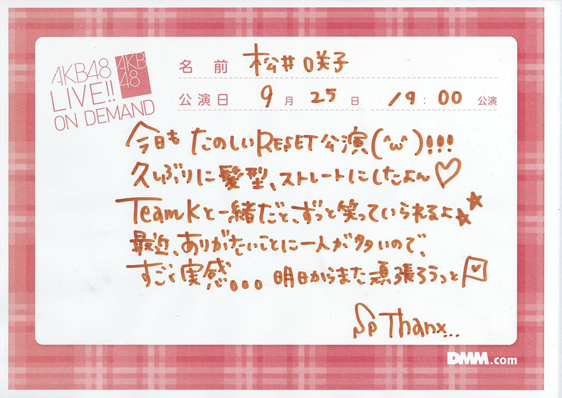 AKB48
LIVE!!
ON DEMAND
AKB
48
名前 松井咲子
公演日 9月25日 19:00 公演
今日も たのしいRESET公演(^ω^)!!!
久しぶりに髪型、ストレートにしたよ〜♡
TeamKと一緒だと、ずっと笑っていられるよ★★
最近、ありがたいことに一人が多いので、
すごく実感。。。 明日からまた頑張ろうっと
Sp Thanx...
DMM.com